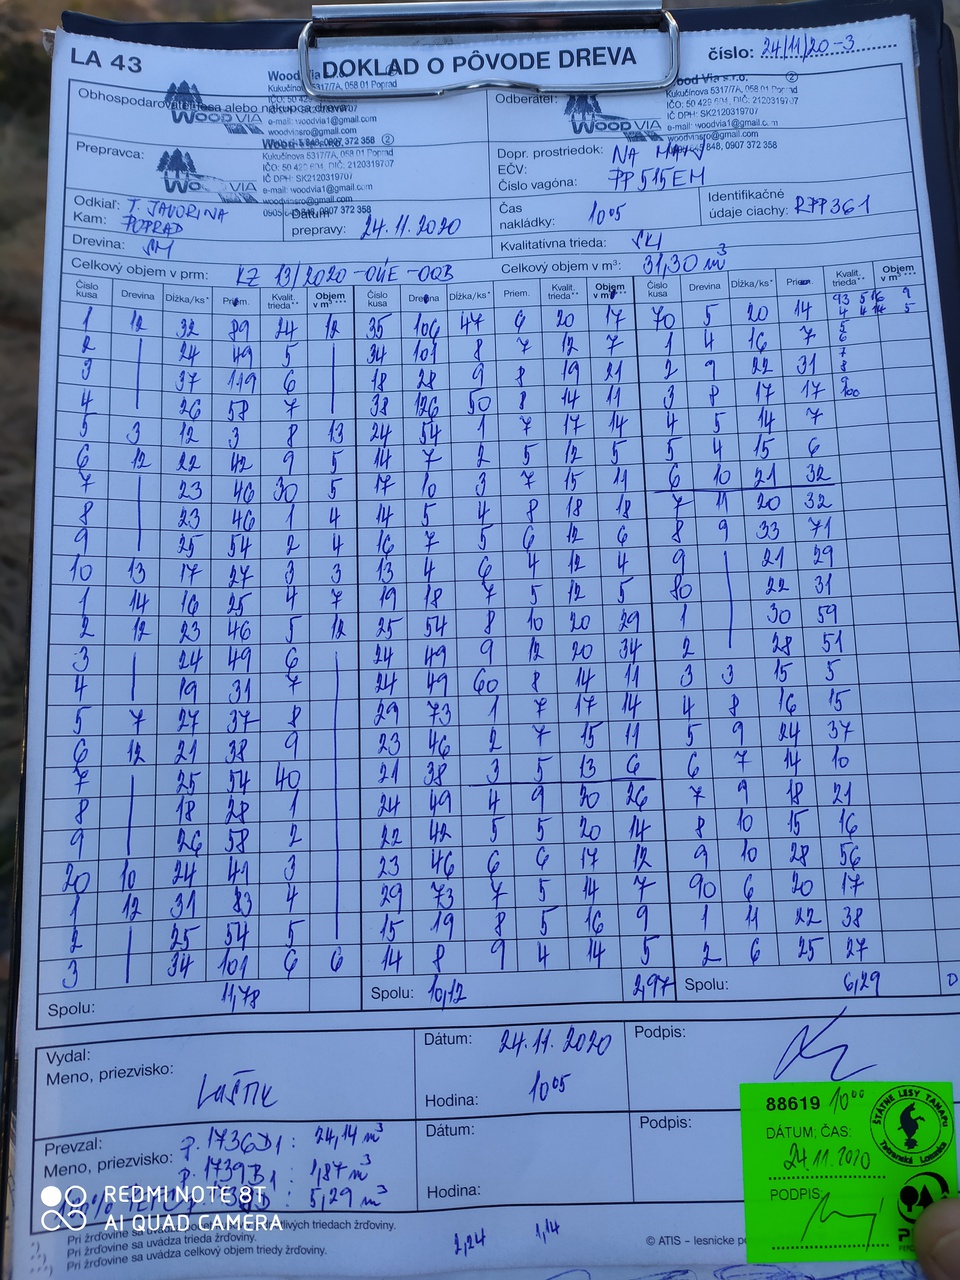 LA 43
DOKLAD O PÔVODE DREVA
číslo: 24/11/20-3
Obhospodarovateľ lesa alebo nákupca dreva:
WOOD VIA
Wood Via s.r.o.
Kukučínova 5317/7A, 058 01 Poprad
e-mail: woodvia1@gmail.com
woodviasro@gmail.com
Odberateľ:
WOOD VIA
Wood Via s.r.o.
Kukučínova 5317/7A, 058 01 Poprad
IČ DPH: SK2120319707
e-mail: woodvia1@gmail.com
woodviasro@gmail.com
Prepravca:
Kukučínova 5317/7A, 058 01 Poprad
IČ DPH: SK2120319707
e-mail: woodvia1@gmail.com
woodviasro@gmail.com
Dopr. prostriedok:
EČV:
Číslo vagóna:
PP 515EM
Odkiaľ: T. JAVORINA
Kam: POPRAD
Dátum prepravy: 24.11.2020
Čas nakládky: 10 05
Identifikačné údaje ciachy: RPP361
Drevina: SM
Kvalitatívna trieda:
Celkový objem v prm: KZ 13/2020
Celkový objem v m³: 31,30 m³
Číslo kusa Drevina Dĺžka/ks* Priem. Kvalit. trieda** Objem v m³*** Číslo kusa Drevina Dĺžka/ks* Priem. Kvalit. trieda** Objem v m³*** Číslo kusa Drevina Dĺžka/ks* Priem. Kvalit. trieda** Objem v m³***
1 12 32 89 24 12 35 106 47 6 20 17 70 5 20 14
2 24 49 5 34 101 8 7 12 7 1 4 16 7
3 37 119 6 18 28 9 8 19 21 2 9 22 31
4 26 58 7 38 126 50 8 14 11 3 8 17 17
5 3 12 3 8 13 24 54 1 7 17 14 4 5 14 7
6 12 22 42 9 5 14 7 2 5 12 5 5 4 15 6
7 23 46 30 5 17 10 3 7 15 11 6 10 21 32
8 23 46 1 4 14 5 4 8 18 18 7 11 20 32
9 25 54 2 4 16 7 5 6 12 6 8 9 33 71
10 13 17 27 3 3 13 4 6 4 12 4 9 21 29
1 14 16 25 4 7 19 18 7 5 12 5 80 22 31
2 12 23 46 5 12 25 54 8 10 20 29 1 30 59
3 24 49 6 24 49 9 12 20 34 2 28 51
4 19 31 7 24 49 60 8 14 11 3 3 15 5
5 7 27 37 8 29 73 1 7 17 14 4 8 16 15
6 12 21 38 9 23 46 2 7 15 11 5 9 24 37
7 25 54 40 21 38 3 5 13 6 6 7 14 10
8 18 28 1 24 49 4 9 20 26 7 9 18 21
9 26 58 2 22 42 5 5 20 14 8 10 15 16
20 10 24 41 3 23 46 6 6 17 12 9 10 28 56
1 12 31 83 4 29 73 7 5 14 7 90 6 20 17
2 25 54 5 15 19 8 5 16 9 1 11 22 38
3 34 101 6 6 14 8 9 4 14 5 2 6 25 27
Spolu: 11,78 Spolu: 10,12 2,97 Spolu: 6,29
Vydal:
Meno, priezvisko:
Dátum: 24.11.2020
Hodina: 10 05
Podpis:
Prevzal:
Meno, priezvisko:
P. 1736D1: 24,14 m³
P. 1739B1: 1,87 m³
5,29 m³
Dátum:
Hodina:
Podpis:
88619 10 00
DÁTUM, ČAS:
24.11.2020
PODPIS:
ŠTÁTNE LESY TANAPU
Tatranská Lomnica
REDMI NOTE 8T
AI QUAD CAMERA
Pri žrďovine sa uvádza trieda žrďoviny.
Pri žrďovine sa uvádza celkový objem triedy žrďoviny.
2,24 1,14
© ATIS – lesnícke